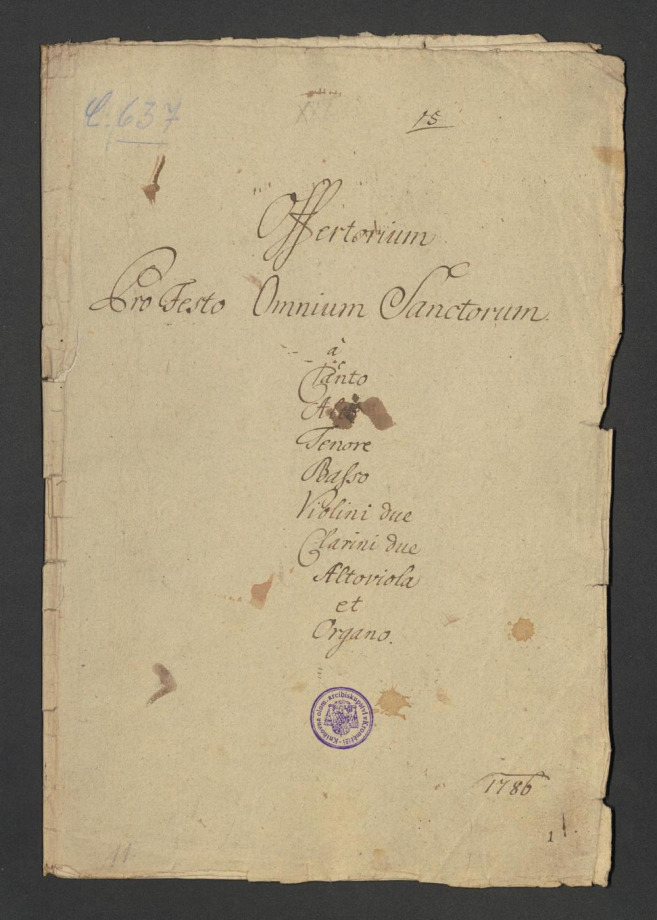 C. 637
XXV
15
Offertorium
Pro Festo Omnium Sanctorum.
à
Canto
Alto
Tenore
Basso
Violini due
Clarini due
Altoviola
et
Organo.
Knihovna olom. arcibiskupství v Kroměříži
1786
1
11